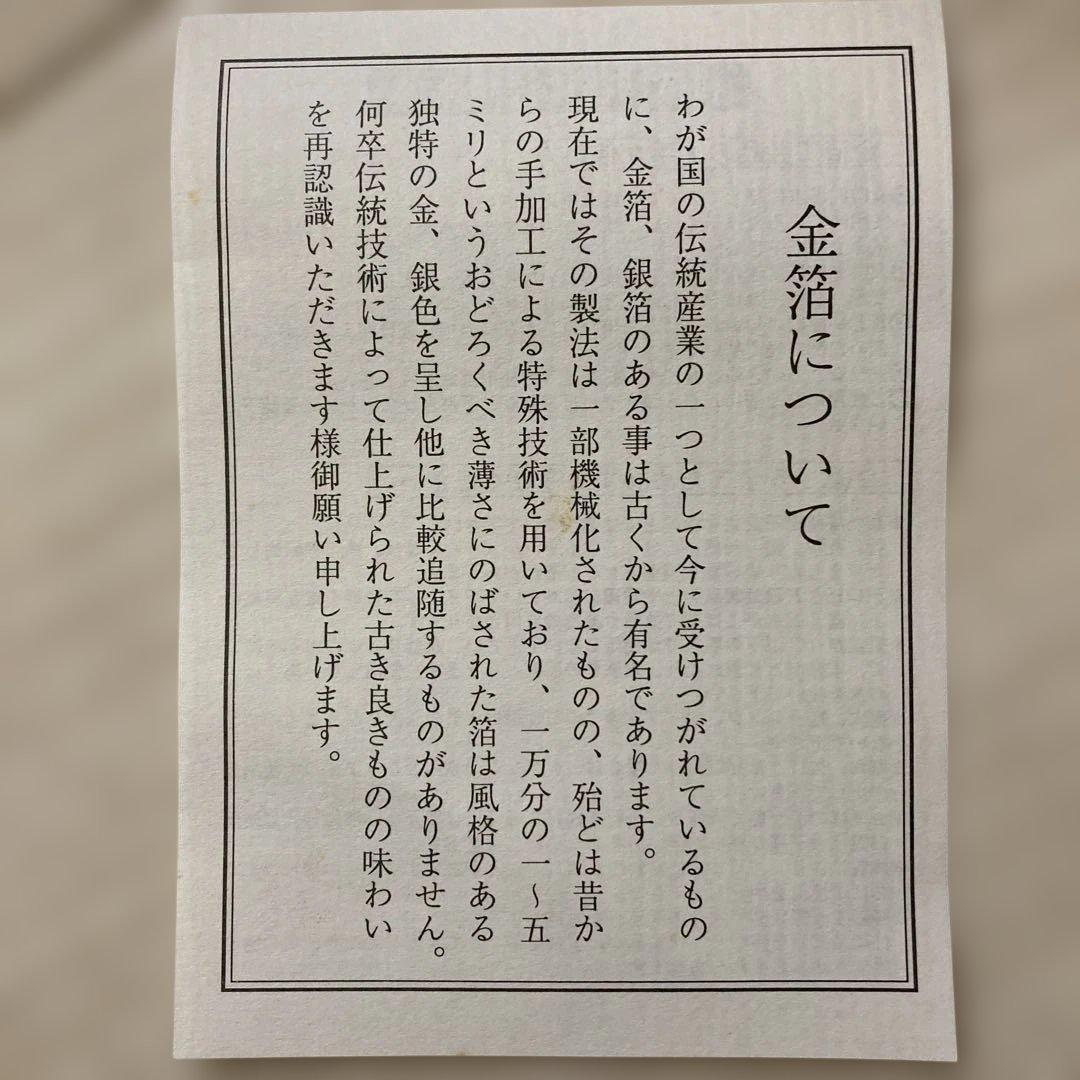 金箔について
わが国の伝統産業の一つとして今に受けつがれているもの
に、金箔、銀箔のある事は古くから有名であります。
現在ではその製法は一部機械化されたものの、殆どは昔か
らの手加工による特殊技術を用いており、一万分の一～五
ミリというおどろくべき薄さにのばされた箔は風格のある
独特の金、銀色を呈し他に比較追随するものがありません。
何卒伝統技術によって仕上げられた古き良きものの味わい
を再認識いただきます様御願い申し上げます。